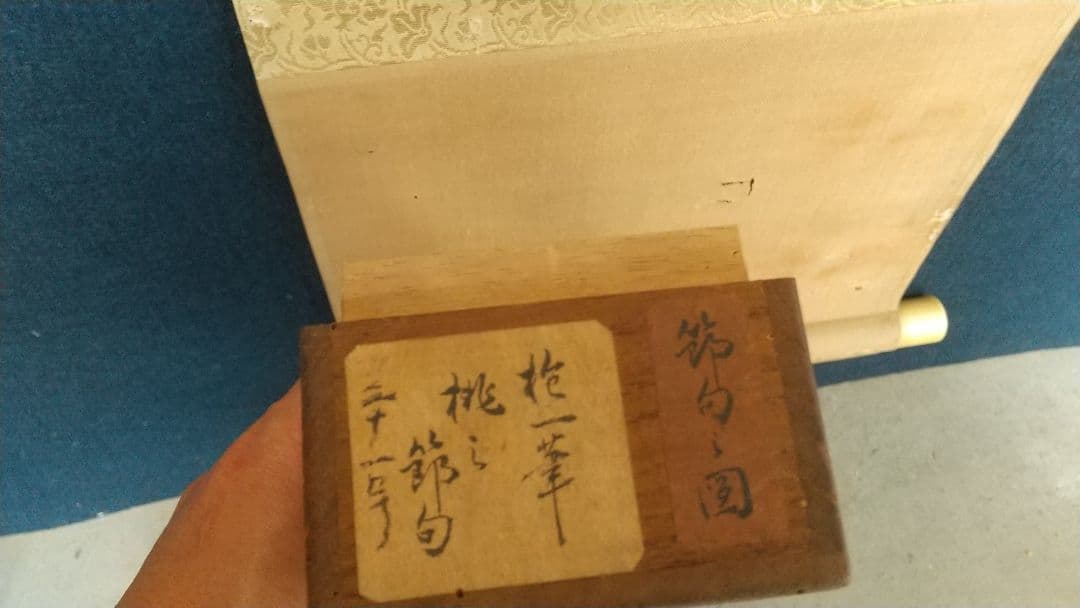 節句之図
抱一筆
桃之
節句
三十一号